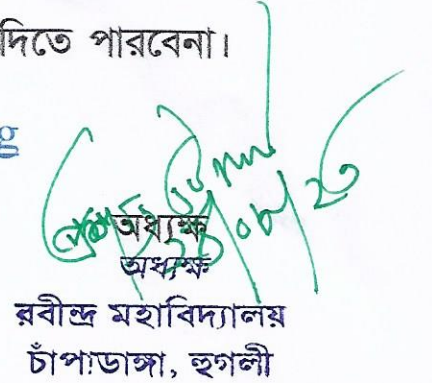 দিতে পারবেনা।
g
অধ্যক্ষ
অধ্যক্ষ
রবীন্দ্র মহাবিদ্যালয়
চাঁপাডাঙ্গা, হুগলী